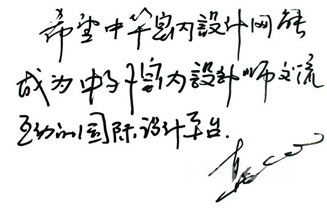 希望中华室内設计网能
成为中外室内設计师交流
互动的国际设计平台.